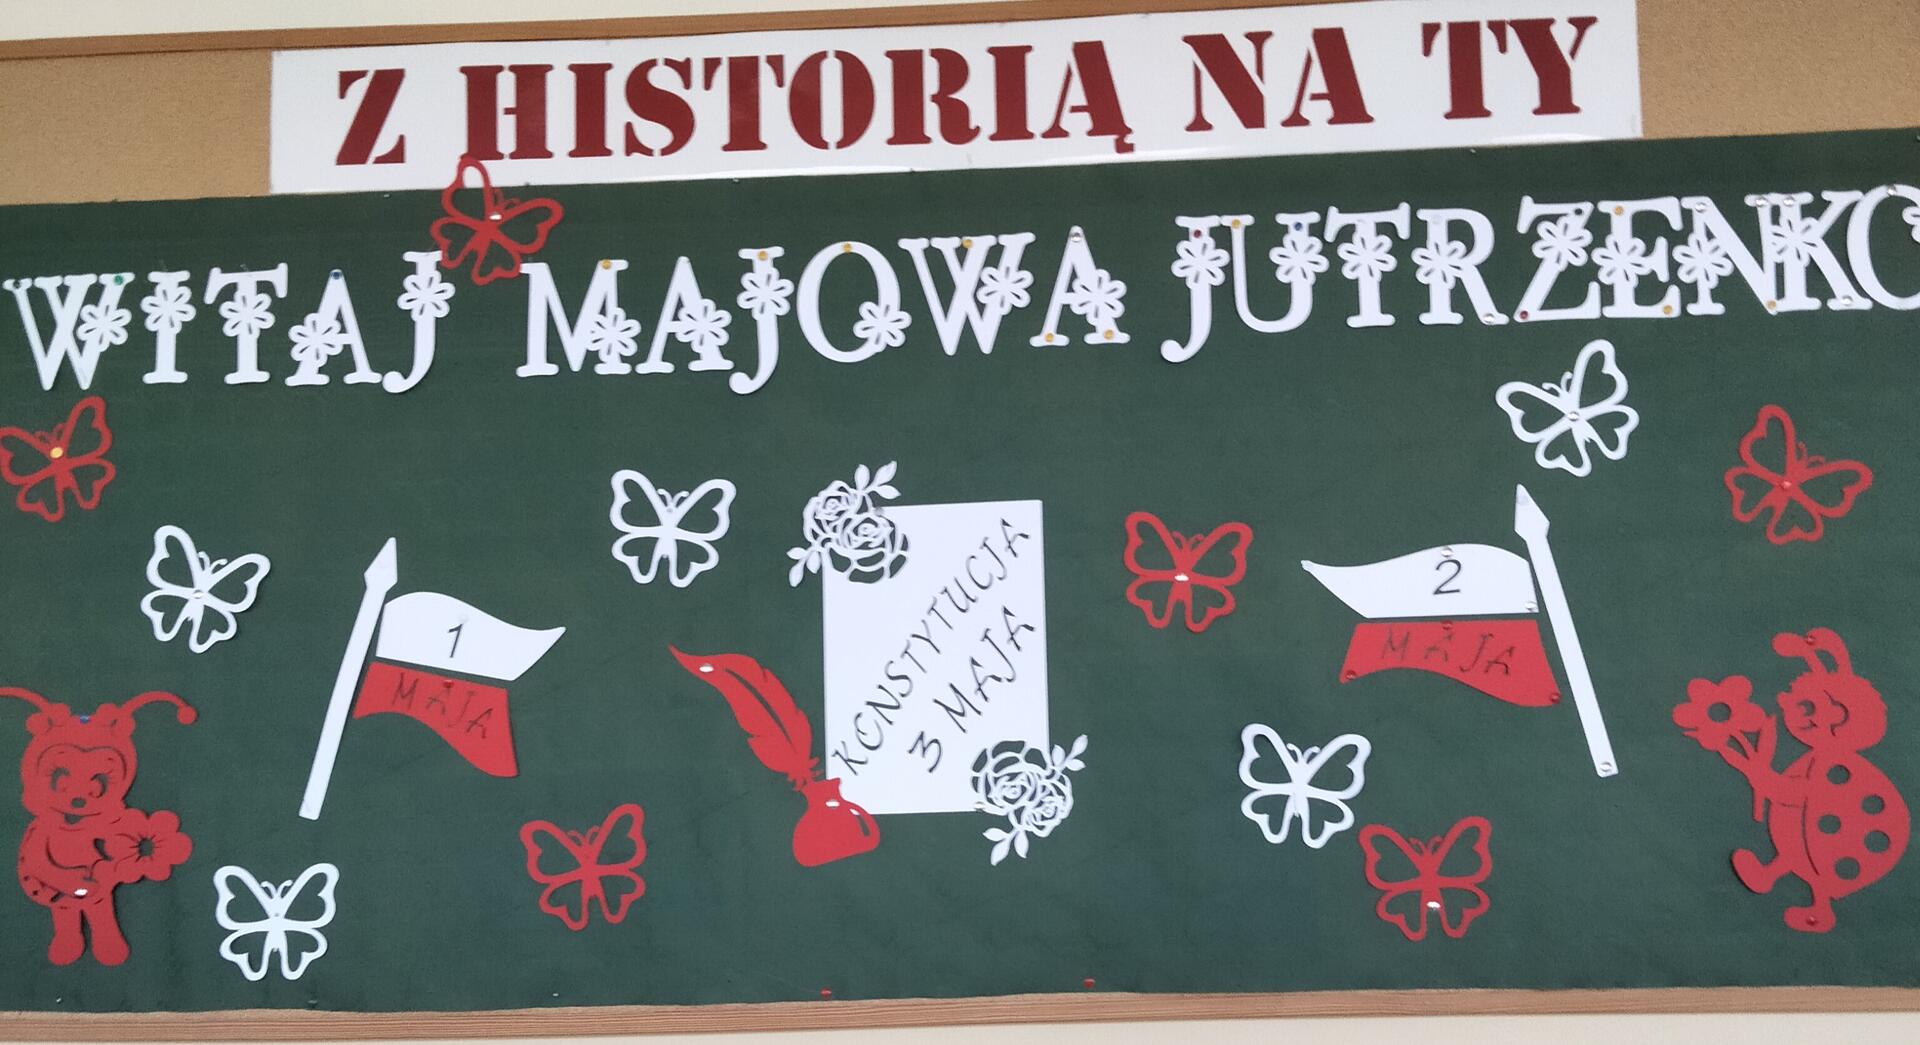 Z HISTORIĄ NA TY
WITAJ MAJOWA JUTRZENKO
1
MAJA
KONSTYTUCJA
3 MAJA
2
MAJA